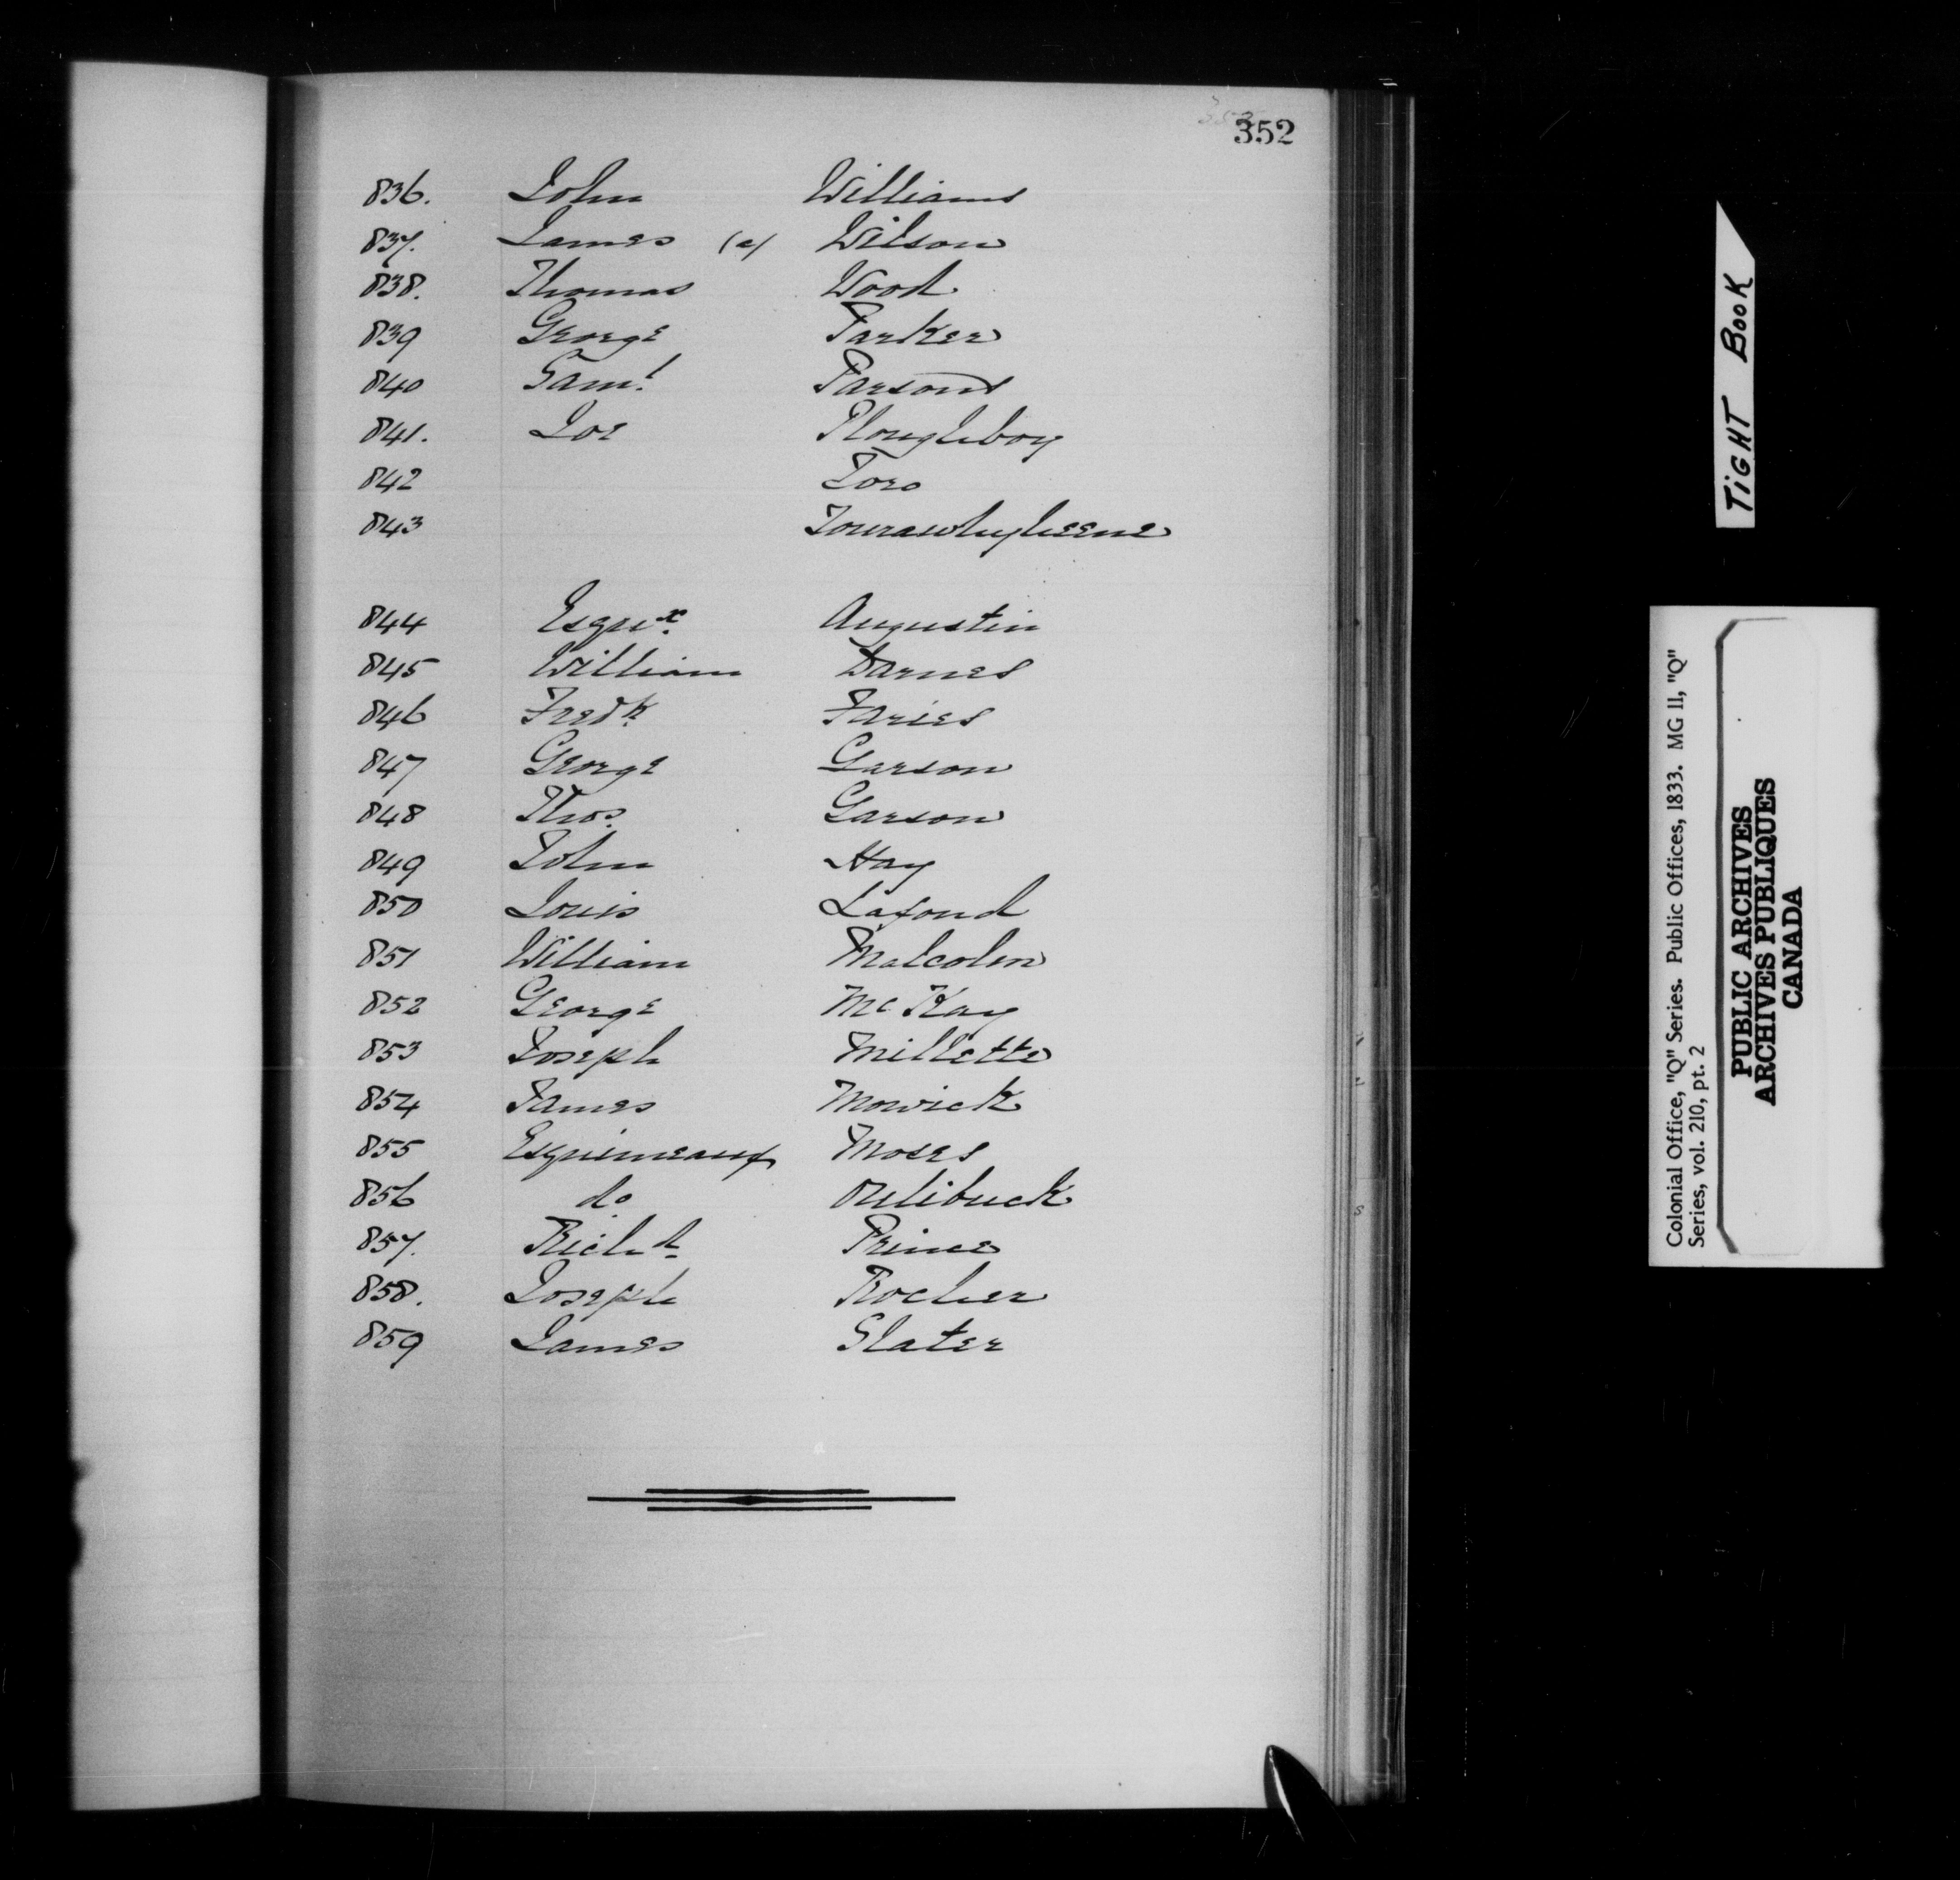 352
836. John Williams
837. James (a) Wilson
838. Thomas Wood
839 George Parker
840 Saml Parsons
841. Joe Ploughboy
842 Toro
843
844 Esqux Augustin
845 William Barnes
846 Fredk Faries
847 George Garson
848 Thos. Garson
849 John Hay
850 Louis Lafond
851 William Malcolm
852 George McKay
853 Joseph Millette
854 James Mowick
855 Esquimeaux Moses
856 do Oulibuck
857. Richd Prince
858. Joseph Rocher
859 James Slater
TiGHT BooK
Colonial Office, "Q" Series. Public Offices, 1833. MG 11, "Q"
Series, vol. 210, pt. 2
PUBLIC ARCHIVES
ARCHIVES PUBLIQUES
CANADA